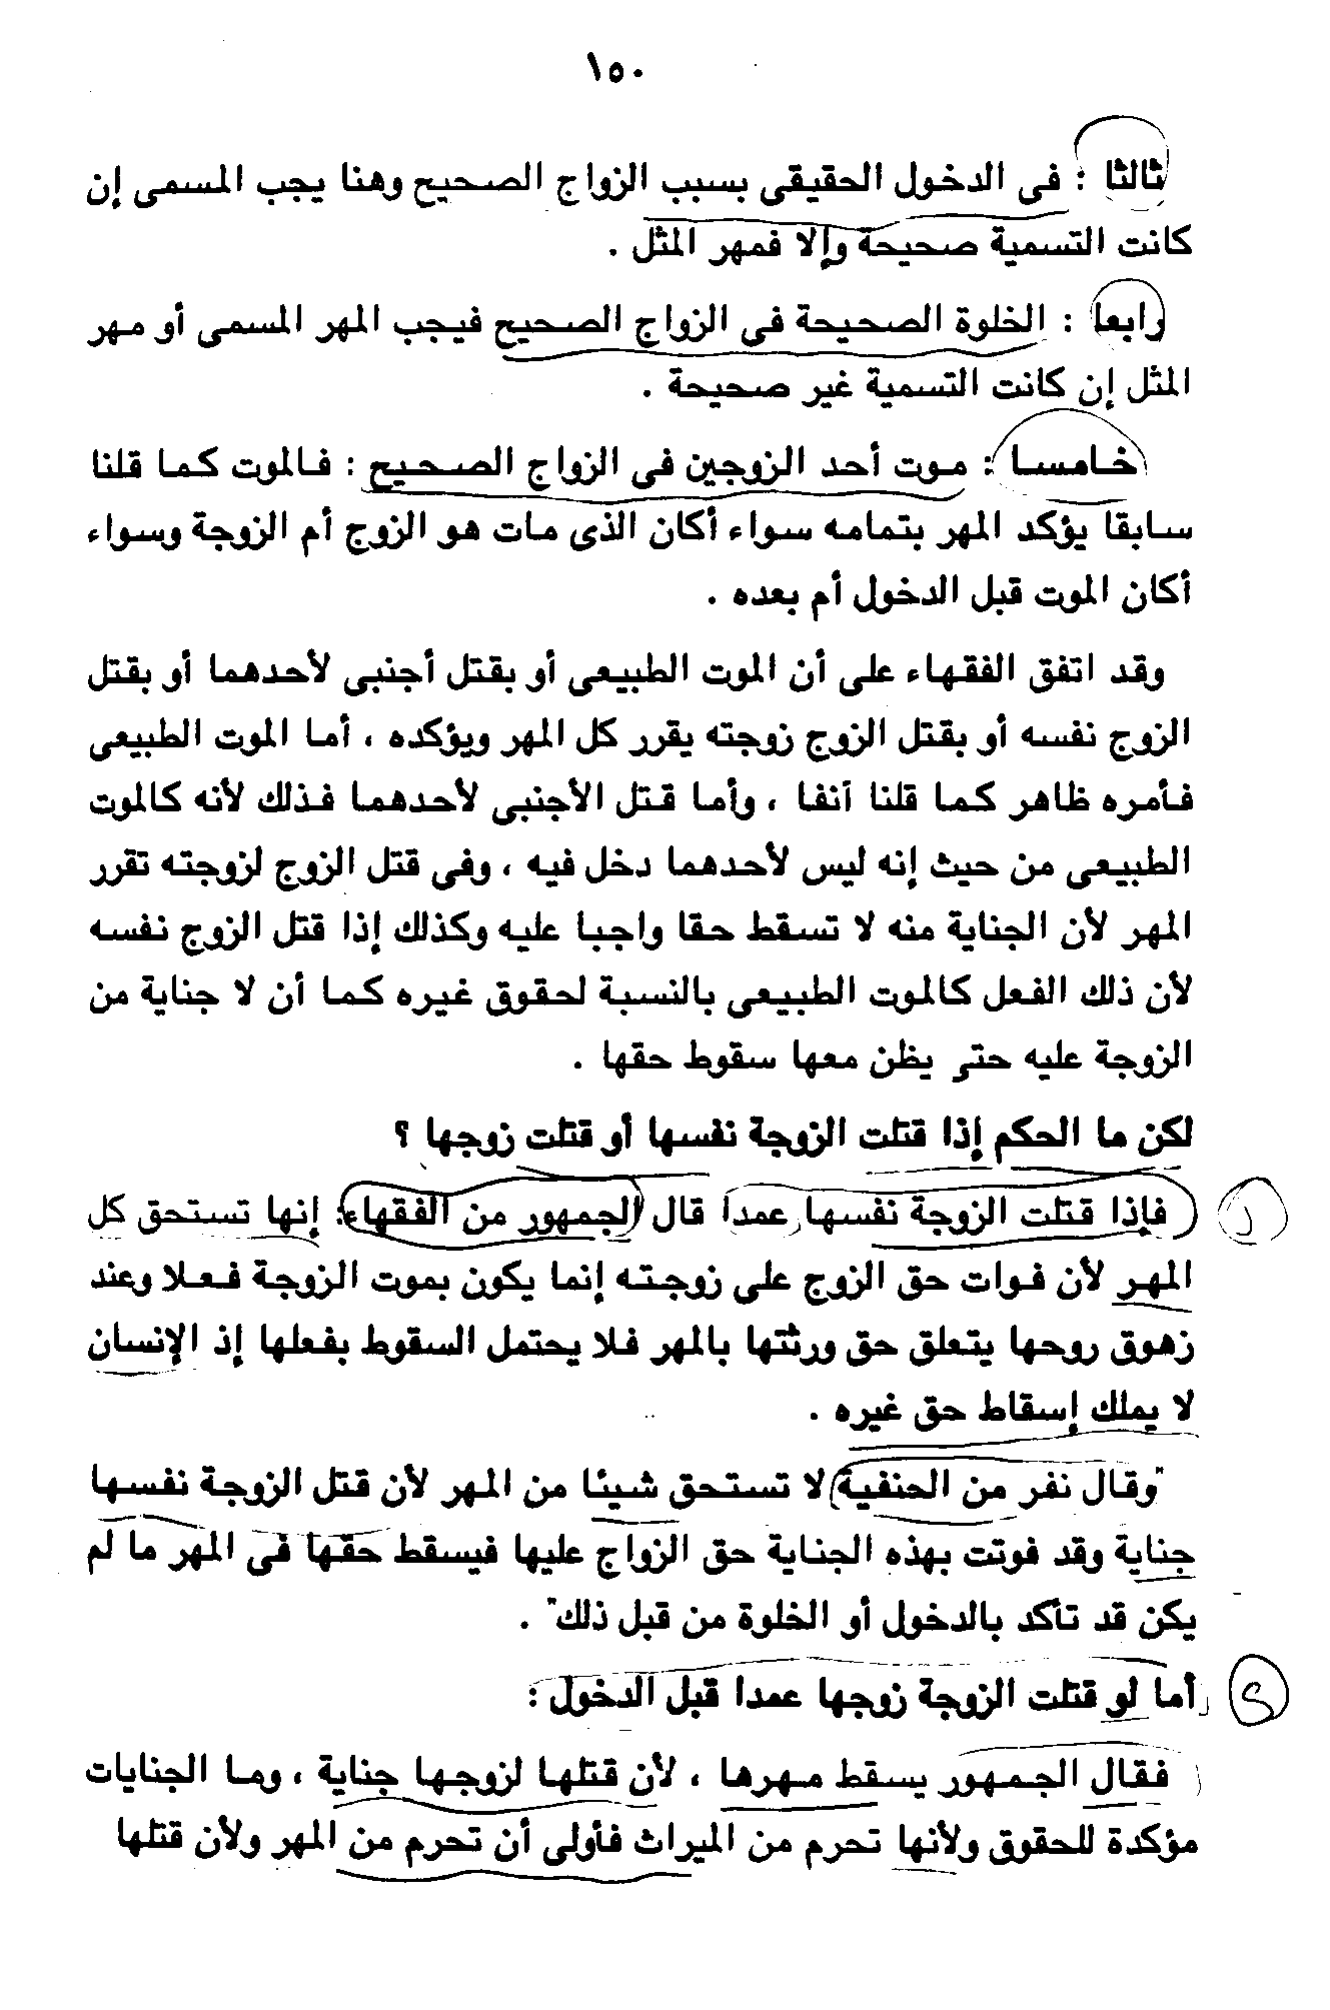 ١٥٠
ثالثا : فى الدخول الحقيقى بسبب الزواج الصحيح وهنا يجب المسمى إن
كانت التسمية صحيحة وإلا فمهر المثل .
رابعا : الخلوة الصحيحة فى الزواج الصحيح فيجب المهر المسمى أو مهر
المثل إن كانت التسمية غير صحيحة .
خامسا : موت أحد الزوجين فى الزواج الصحيح : فالموت كما قلنا
سابقا يؤكد المهر بتمامه سواء أكان الذى مات هو الزوج أم الزوجة وسواء
أكان الموت قبل الدخول أم بعده .
وقد اتفق الفقهاء على أن الموت الطبيعى أو بقتل أجنبى لأحدهما أو بقتل
الزوج نفسه أو بقتل الزوج زوجته يقرر كل المهر ويؤكده ، أما الموت الطبيعى
فأمره ظاهر كما قلنا آنفا ، وأما قتل الأجنبى لأحدهما فذلك لأنه كالموت
الطبيعى من حيث إنه ليس لأحدهما دخل فيه ، وفى قتل الزوج لزوجته تقرر
المهر لأن الجناية منه لا تسقط حقا واجبا عليه وكذلك إذا قتل الزوج نفسه
لأن ذلك الفعل كالموت الطبيعى بالنسبة لحقوق غيره كما أن لا جناية من
الزوجة عليه حتى يظن معها سقوط حقها .
لكن ما الحكم إذا قتلت الزوجة نفسها أو قتلت زوجها ؟
فإذا قتلت الزوجة نفسها عمدا قال الجمهور من الفقهاء: إنها تستحق كل
المهر لأن فوات حق الزوج على زوجته إنما يكون بموت الزوجة فعلا وعند
زهوق روحها يتعلق حق ورثتها بالمهر فلا يحتمل السقوط بفعلها إذ الإنسان
لا يملك إسقاط حق غيره .
"وقال نفر من الحنفية لا تستحق شيئا من المهر لأن قتل الزوجة نفسها
جناية وقد فوتت بهذه الجناية حق الزواج عليها فيسقط حقها فى المهر ما لم
يكن قد تأكد بالدخول أو الخلوة من قبل ذلك" .
أما لو قتلت الزوجة زوجها عمدا قبل الدخول :
فقال الجمهور يسقط مهرها ، لأن قتلها لزوجها جناية ، وما الجنايات
مؤكدة للحقوق ولأنها تحرم من الميراث فأولى أن تحرم من المهر ولأن قتلها